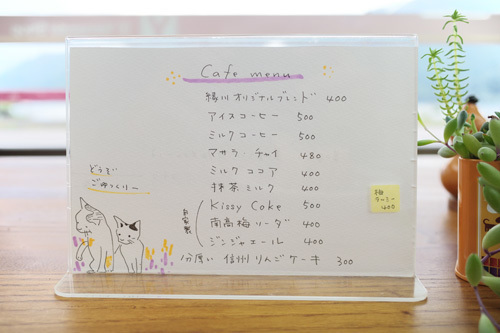 Cafe menu
緑川 オリジナルブレンド 400
アイスコーヒー 500
ミルクコーヒー 500
マサラ・チャイ 480
ミルク ココア 400
抹茶ミルク 400
自家製
Kissy Coke 500
南高梅ソーダ 400
ジンジャエール 400
厚い 信州りんごケーキ 300
どうぞ
ごゆっくりー
梅
400